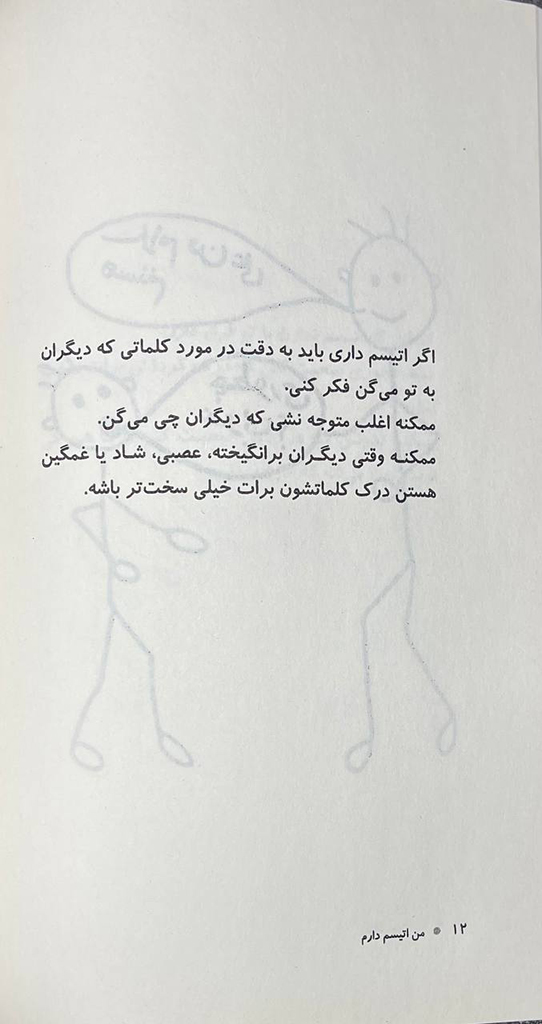 اگر اتیسم داری باید به دقت در مورد کلماتی که دیگران
به تو می‌گن فکر کنی.
ممکنه اغلب متوجه نشی که دیگران چی می‌گن.
ممکنه وقتی دیگران برانگیخته، عصبی، شاد یا غمگین
هستن درک کلماتشون برات خیلی سخت‌تر باشه.
۱۲ ● من اتیسم دارم